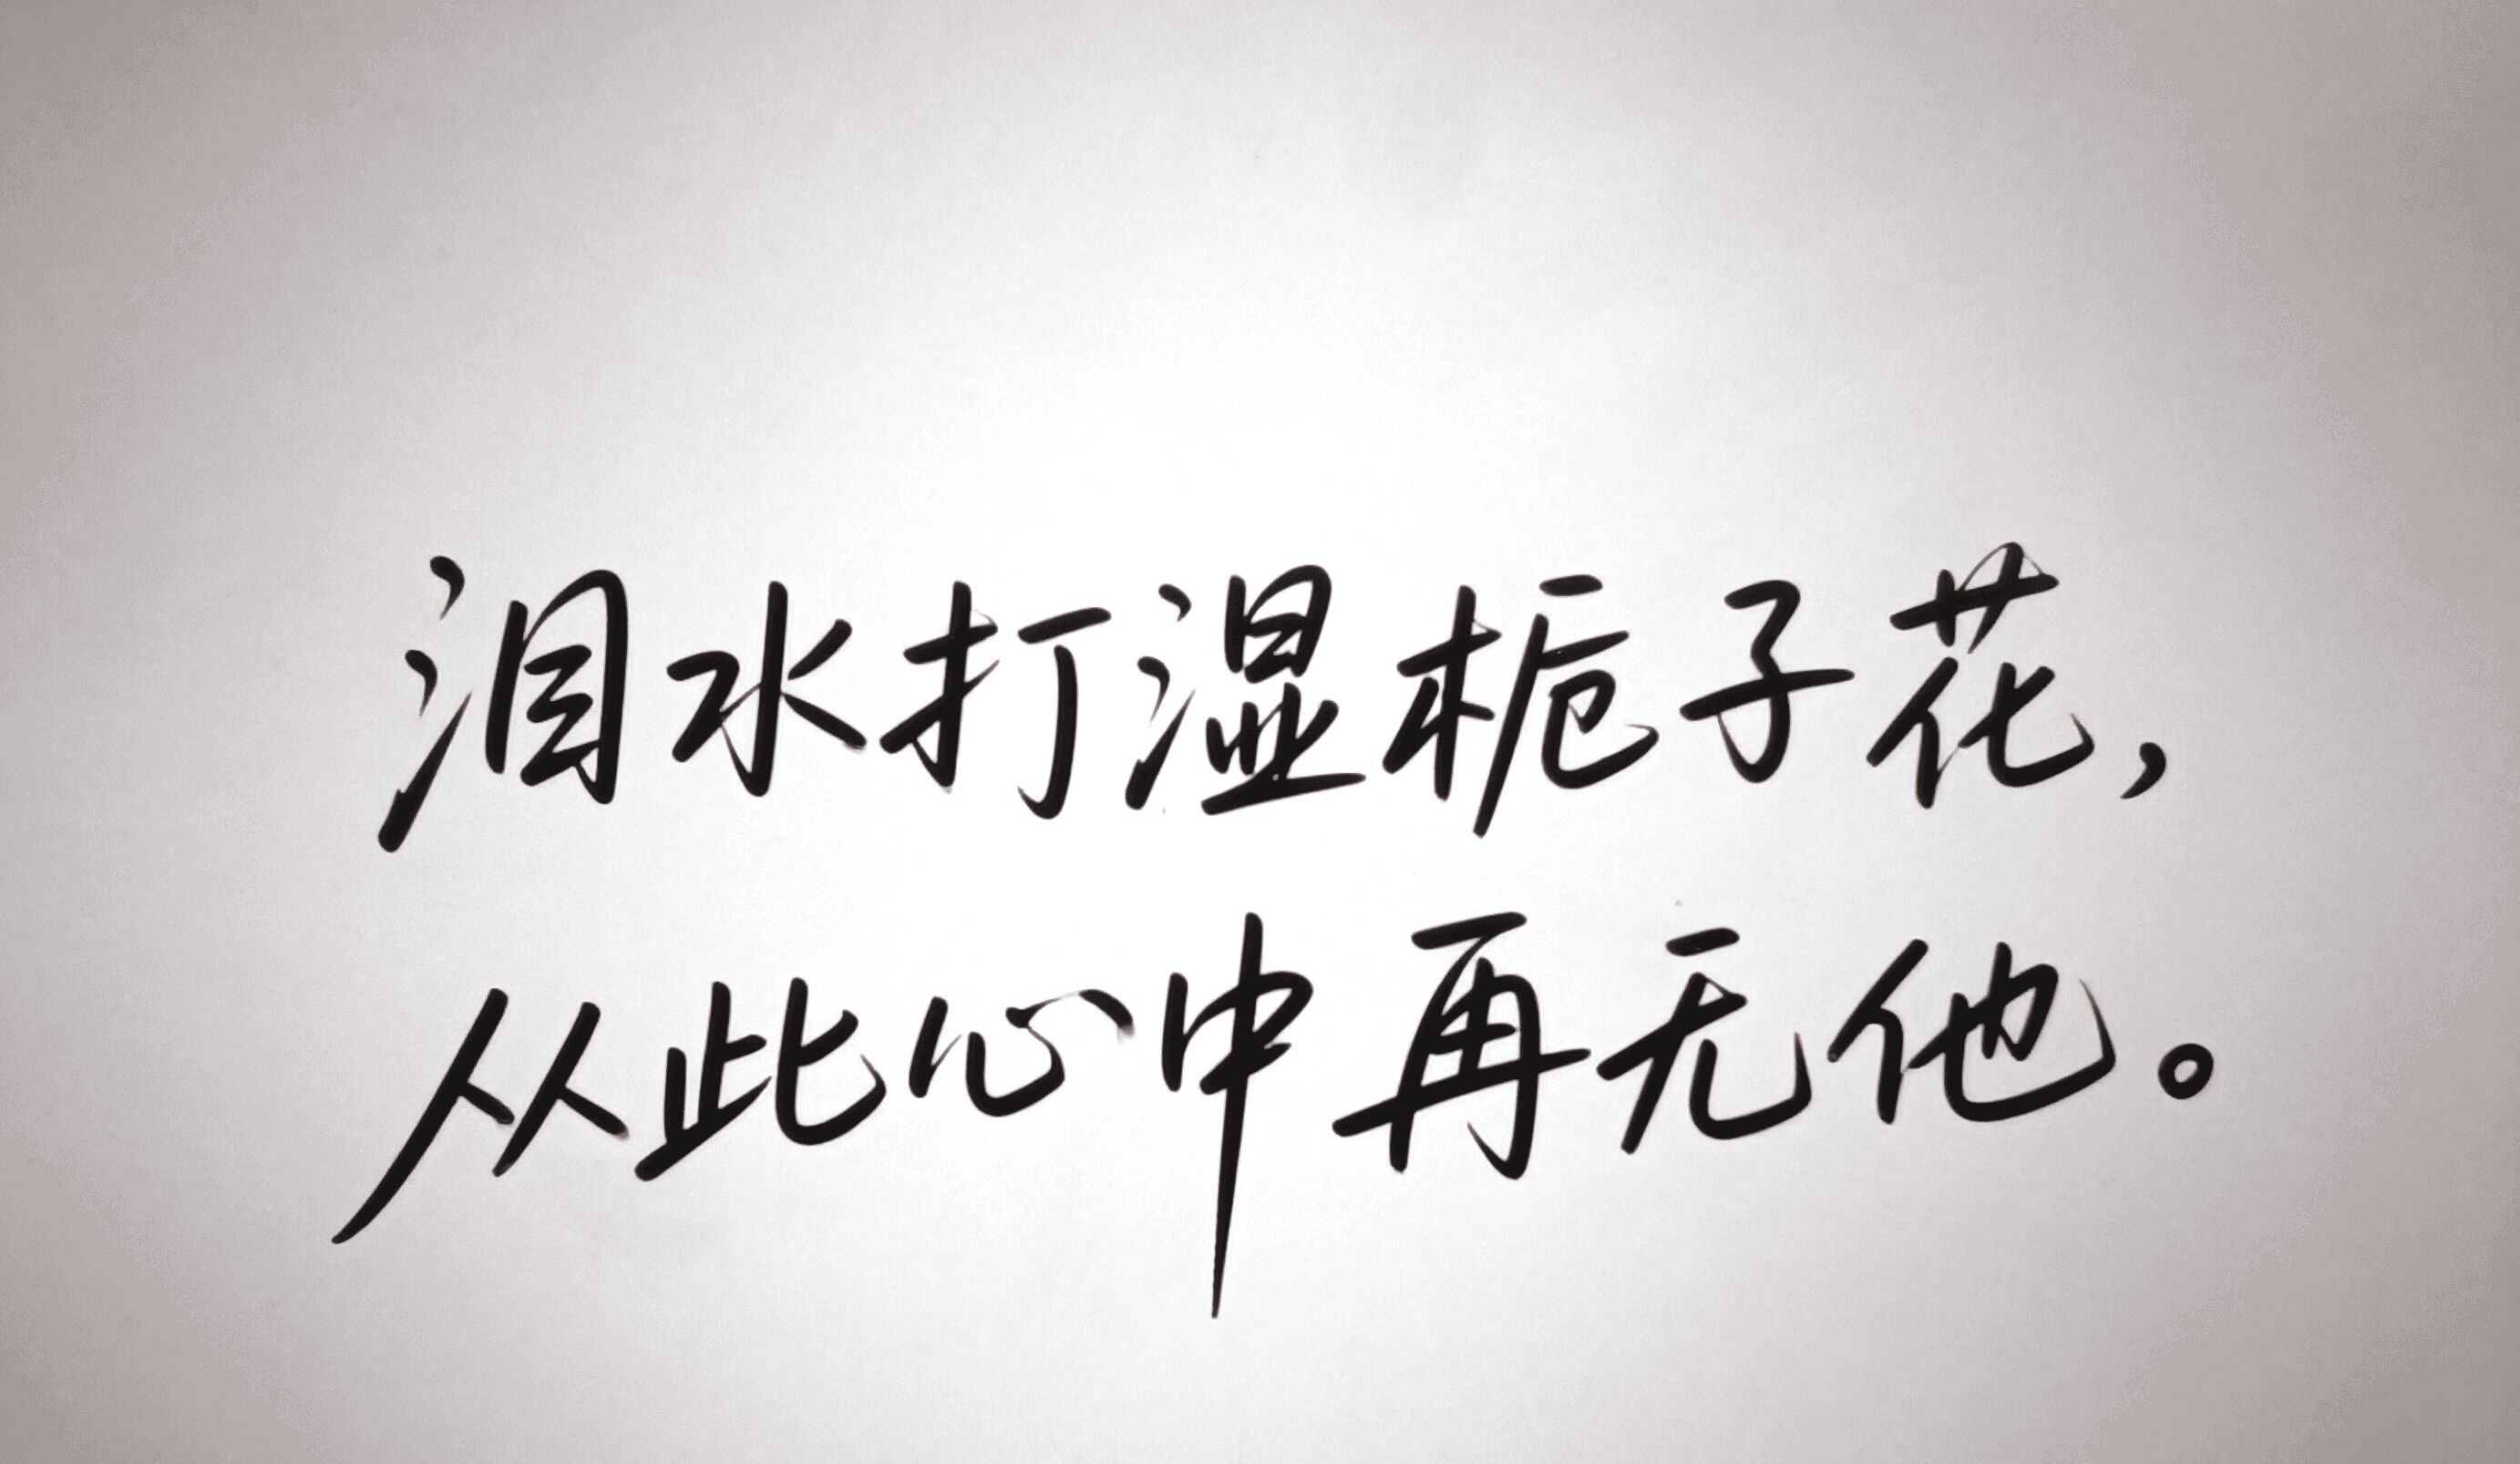 泪水打湿栀子花，
从此心中再无他。